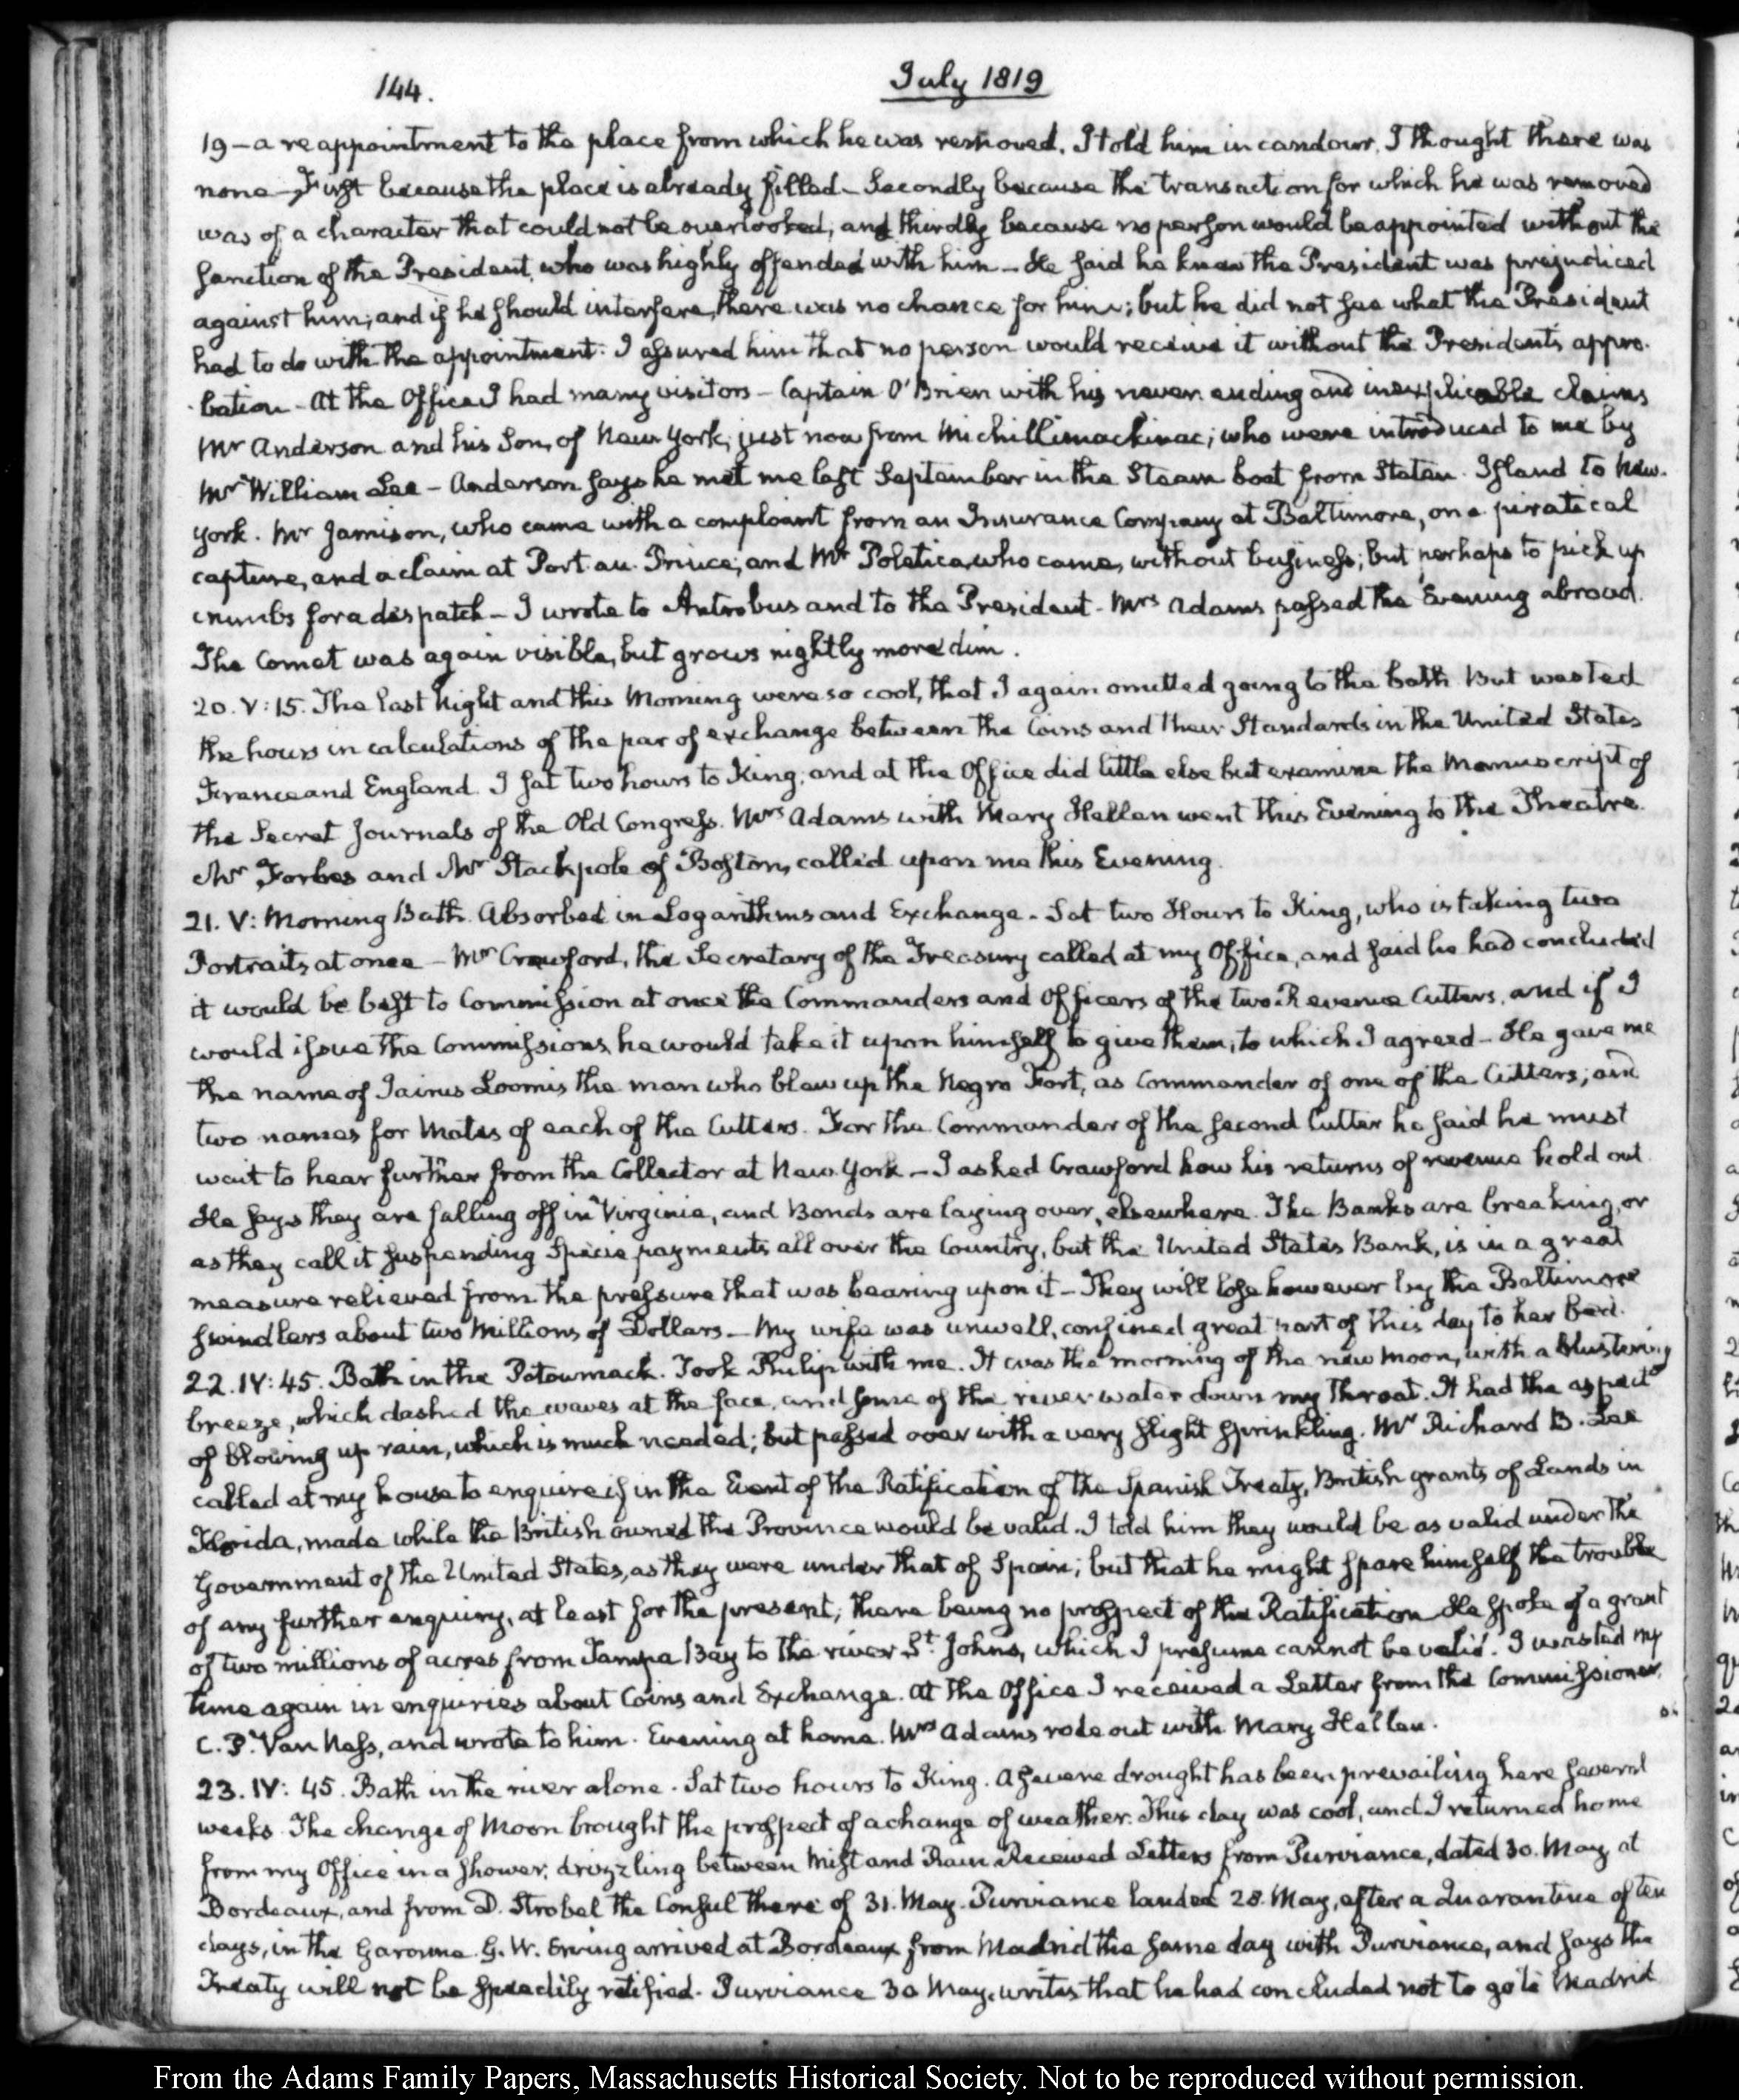 144.
July 1819
19 – a reappointment to the place from which he was removed. I told him in candour, I thought there was
none – First because the place is already filled – Secondly because the transaction for which he was removed
was of a character that could not be overlooked, and thirdly because no person would be appointed without the
sanction of the President, who was highly offended with him – He said he knew the President was prejudiced
against him, and if he should interfere, there was no chance for him; but he did not see what the President
had to do with the appointment. I assured him that no person would receive it without the Presidents appro-
bation – At the Office I had many visitors – Captain O'Brien with his never ending and inexplicable claims
Mr Anderson and his Son, of New York, just now from Michillimackinac; who were introduced to me by
Mr William Lee – Anderson says he met me last September in the Steam boat from Staten Island to New-
York. Mr Jamison, who came with a complaint from an Insurance Company at Baltimore, on a piratical
capture, and a claim at Port au Prince; and Mr Poletica, who came, without business; but perhaps to pick up
crumbs for a dispatch – I wrote to Antrobus and to the President – Mrs Adams passed the Evening abroad.
The Comet was again visible, but grows nightly more dim.
20. V:15. The last Night and this Morning were so cool, that I again omitted going to the bath. But wasted
the hours in calculations of the par of exchange between the Coins and their Standards in the United States
France and England. I sat two hours to King; and at the Office did little else but examine the Manuscript of
the Secret Journals of the Old Congress. Mrs Adams with Mary Hellen went this Evening to the Theatre.
Mr Forbes and Mr Stackpole of Boston, called upon me this Evening.
21. V: Morning Bath. Absorbed in Logarithms and Exchange – Sat two Hours to King, who is taking two
Portraits at once – Mr Crawford, the Secretary of the Treasury called at my Office, and said he had concluded
it would be best to Commission at once the Commanders and Officers of the two Revenue Cutters, and if I
would issue the Commissions, he would take it upon himself to give them, to which I agreed – He gave me
the name of Jairus Loomis the man who blew up the Negro Fort, as Commander of one of the Cutters; and
two names for Mates of each of the Cutters. For the Commander of the second Cutter he said he must
wait to hear further from the Collector at New York – I asked Crawford how his returns of revenue hold out
He says they are falling off in Virginia, and Bonds are laying over, elsewhere. The Banks are breaking, or
as they call it suspending Specie payments all over the Country, but the United States Bank, is in a great
measure relieved from the pressure that was bearing upon it – They will lose however by the Baltimore
swindlers about two Millions of Dollars – My wife was unwell, confined great part of this day to her bed.
22. IV:45. Bath in the Potowmack. Took Philip with me. It was the morning of the new Moon, with a blustering
breeze, which dashed the waves at the face, and some of the river water down my throat. It had the aspect
of blowing up rain, which is much needed; but passed over with a very slight sprinkling. Mr Richard B. Lee
called at my house to enquire if in the Event of the Ratification of the Spanish Treaty, British grants of Lands in
Florida, made while the British owned the Province would be valid. I told him they would be as valid under the
Government of the United States, as they were under that of Spain; but that he might spare himself the trouble
of any further enquiry, at least for the present; there being no prospect of the Ratification. He spoke of a grant
of two millions of acres from Tampa Bay to the river St. Johns, which I presume cannot be valid. I wasted my
time again in enquiries about Coins and Exchange. At the Office I received a Letter from the Commissioner,
C. P. Van Ness, and wrote to him. Evening at home. Mrs Adams rode out with Mary Hellen.
23. IV:45. Bath in the river alone. Sat two hours to King. A severe drought has been prevailing here several
weeks. The change of Moon brought the prospect of a change of weather. This day was cool, and I returned home
from my Office in a shower, drizzling between Mist and Rain. Received Letters from Purviance, dated 30. May at
Bordeaux, and from D. Strobel the Consul there of 31. May. Purviance landed 28. May, after a Quarantine of ten
days, in the Garonne. G. W. Erving arrived at Bordeaux from Madrid the same day with Purviance, and says the
Treaty will not be speedily ratified. Purviance 30 May, writes that he had concluded not to go to Madrid
From the Adams Family Papers, Massachusetts Historical Society. Not to be reproduced without permission.